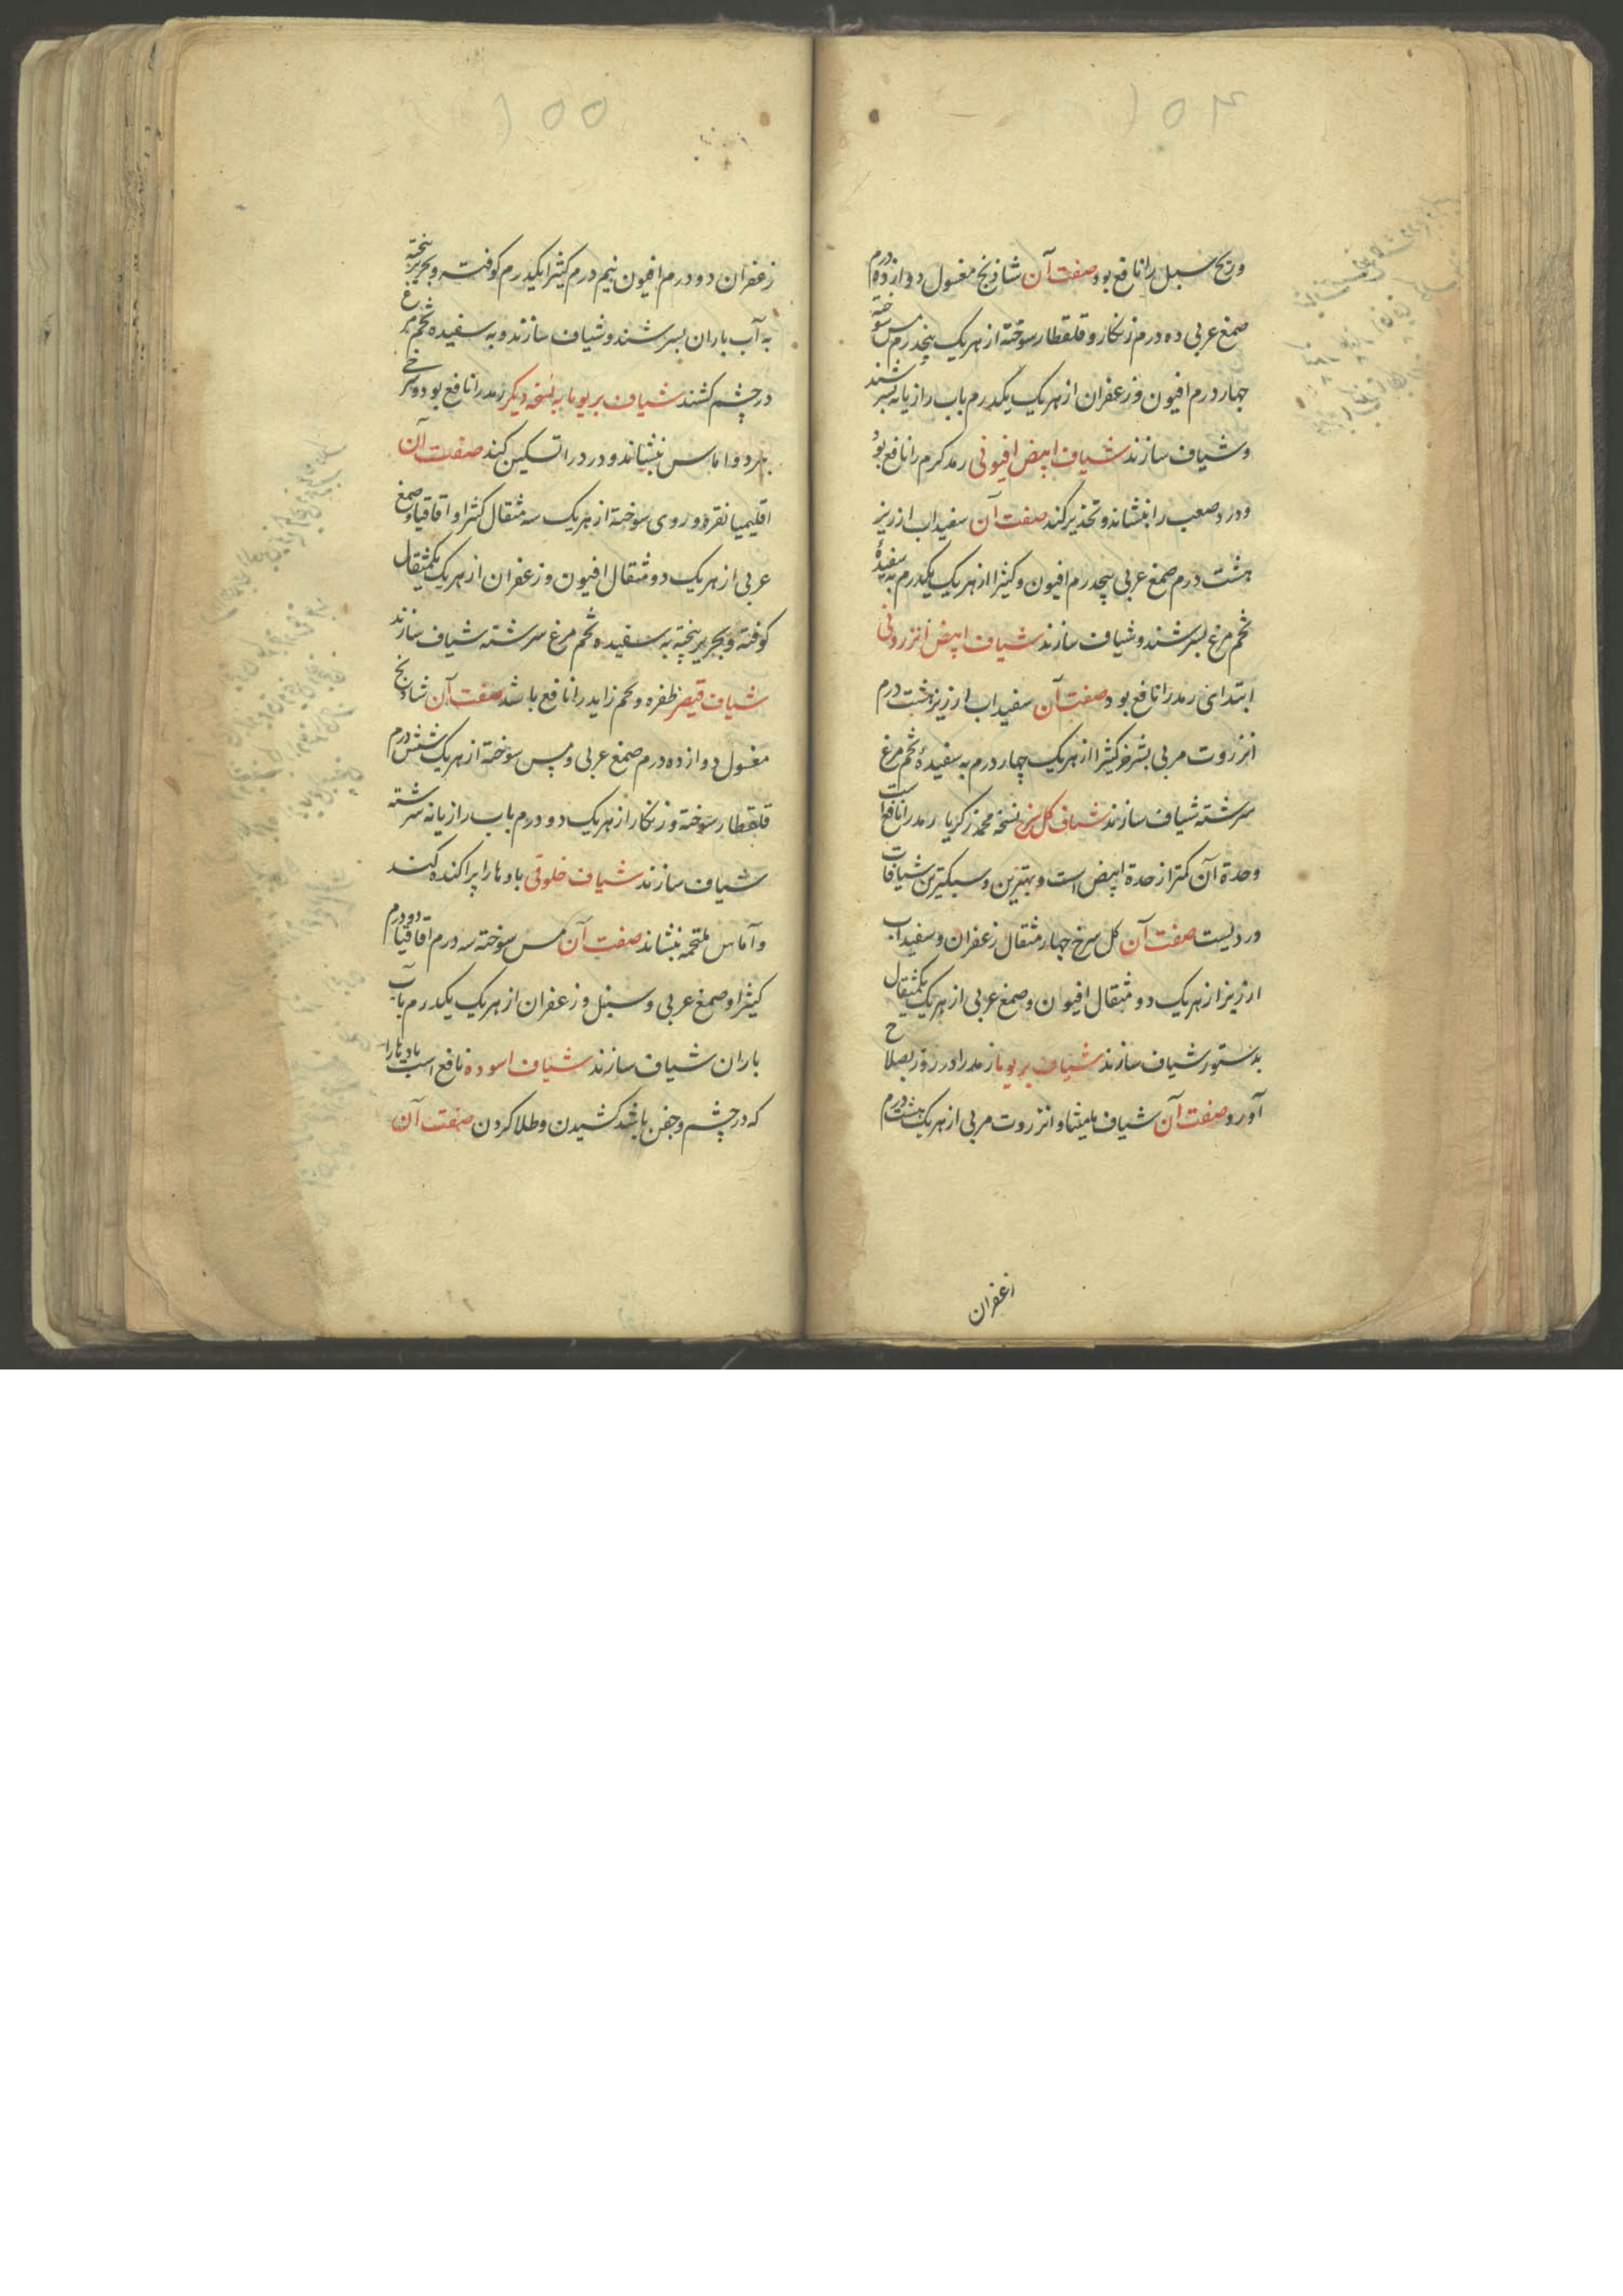 ۱۵۴
وریح سبل را نافع بود صفت آن شاذنج مغسول دوازده درم
صمغ عربی ده درم زنکار و قلقطار سوخته از هریک پنجدرم مس سوخته
چهار درم افیون و زعفران از هریک یکدرم باب رازیانه بسرشند
و شیاف سازند شیاف ابیض افیونی رمد کرم را نافع بود
و درد صعب را بنشاند و تخدیر کند صفت آن سفیداب ارزیز
هشت درم صمغ عربی پنجدرم افیون و کتیرا از هریک یکدرم به سفیدهٔ
تخم مرغ بسرشند و شیاف سازند شیاف ابیض انزروتی
ابتدای رمد را نافع بود صفت آن سفیداب ارزیز هشت درم
انزروت مربی بشیر خر کتیرا از هریک چهار درم به سفیدهٔ تخم مرغ
سرشته شیاف سازند شیاف کل سرخ نسخه محمد زکریا رمد را نافع است
وحدة آن کمتر از حدة ابیض است و بهترین و سبکترین شیافات
وردیست صفت آن کل سرخ چهار مثقال زعفران و سفیداب
ارزیز از هریک دو مثقال افیون و صمغ عربی از هریک یکمثقال
بدستور شیاف سازند شیاف بریوما رمد را در روز بصلاح
آورد صفت آن شیاف مامیثا و انزروت مربی از هریک هشت درم
زعفران
۱۵۵
زعفران دو درم افیون نیم درم کتیرا یکدرم کوفته و بحریر پخته
به آب باران بسرشند و شیاف سازند و به سفیده تخم مرغ
در چشم کشند شیاف بریوما به نسخه دیکر رمد را نافع بود و سرخی
ببرد و اماس بنشاند و درد را تسکین کند صفت آن
اقلیمیا نقره و روی سوخته از هریک سه مثقال کتیرا و اقاقیا و صمغ
عربی از هریک دو مثقال افیون و زعفران از هریک یکمثقال
کوفته و بحریر پخته به سفیده تخم مرغ سرشته شیاف سازند
شیاف قیصر ظفره و لحم زاید را نافع باشد صفت آن شادنج
مغسول دوازده درم صمغ عربی و مس سوخته از هریک شش درم
قلقطار سوخته و زنکار از هریک دو درم باب رازیانه سرشته
شیاف سازند شیاف خلوقی بادها را پراکنده کند
و آماس ملتحمه بنشاند صفت آن مس سوخته سه درم اقاقیا دو درم
کتیرا و صمغ عربی و سنبل و زعفران از هریک یکدرم باب
باران شیاف سازند شیاف اسود نافع است بادها را
که در چشم و جفن باشد کشیدن و طلا کردن صفت آن